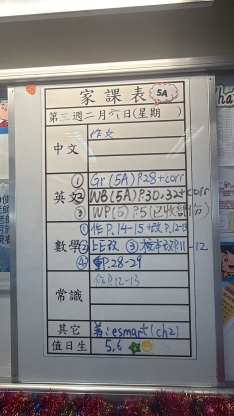 家課表 5A
第三週二月六日(星期 )
中文 作文
英文 ① Gr (5A) P.28 + corr
② WB (5A) P.30, 32 + corr
③ WP(5) P.5 (已收部份)
數學 ① 作 P.14-15 + 改 P.12-13
② 上B改 ③ 補本改 P.11-12
④ 重P.28-29
常識 作 P.12-13
其它 普: esmart (ch2)
值日生 5, 6